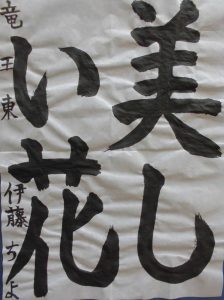 美し
い花
竜王東 伊藤ちよ